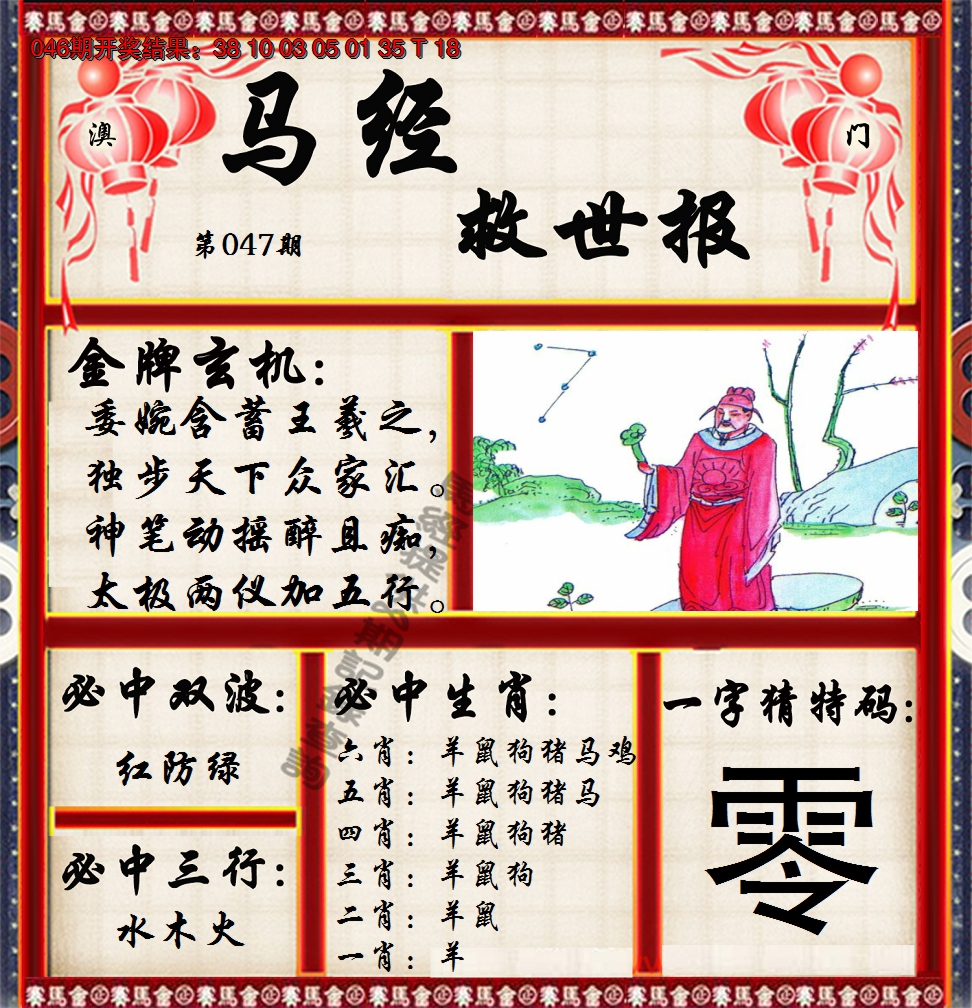 046期开奖结果：38 10 03 05 01 35 T 18
澳
门
马经
救世报
第047期
金牌玄机：
委婉含蓄王羲之，
独步天下众家汇。
神笔动摇醉且痴，
太极两仪加五行。
必中双波：
红防绿
必中三行：
水木火
必中生肖：
六肖：羊鼠狗猪马鸡
五肖：羊鼠狗猪马
四肖：羊鼠狗猪
三肖：羊鼠狗
二肖：羊鼠
一肖：羊
一字猜特码：
零